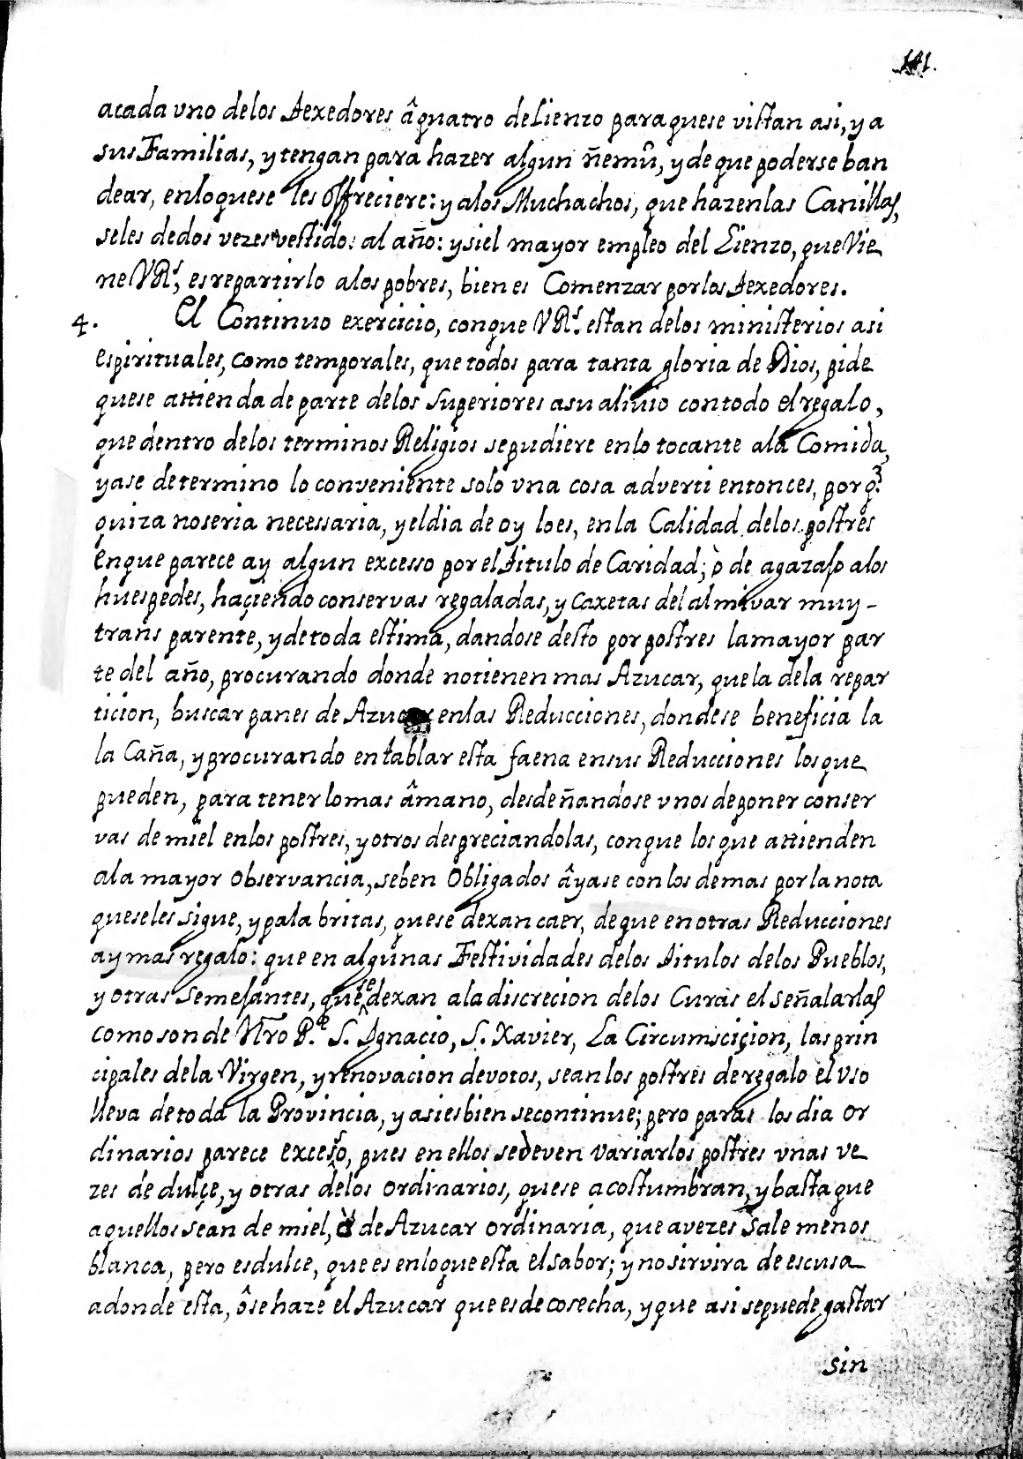 141.
acada vno delos texedores â quatro de Lienzo para quese vistan asi, y a
sus Familias, y tengan para hazer algun ñemû, y de que poderse ban
dear, enloquese les offreciere: y alos Muchachos, que hazen las Canillas,
seles de dos vezes vestido: al año: y si el mayor empleo del Lienzo, que Vie
ne VRˢ, es repartirlo alos pobres, bien es Comenzar por los texedores.
4. El Continuo exercicio, con que VRˢ. estan delos ministerios asi
espirituales, como temporales, que todos para tanta gloria de Dios, pide
quese attienda de parte delos Superiores asu alivio con todo el regalo,
que dentro delos terminos Religios se pudiere en lo tocante ala Comida,
yase determino lo conveniente solo vna cosa adverti entonces, por q̃
quiza no seria necessaria, y el dia de oy lo es, en la Calidad delos postres
en que parece ay algun excesso por el titulo de Caridad; ò de agazajo alos
huespedes, haçiendo conservas regaladas, y caxetas del almivar muy-
trans parente, y de toda estima, dandose desto por postres la mayor par
te del año, procurando donde no tienen mas Azucar, que la dela repar
ticion, buscar panes de Azucar en las Reducciones, donde se beneficia la
la Caña, y procurando entablar esta faena en sus Reducciones los que
pueden, para tener lo mas â mano, desdeñandose vnos de poner conser
vas de miel en los postres, y otros despreciandolas, con que los que attienden
ala mayor observancia, se ben Obligados â yase con los demas por la nota
que seles sigue, y palabritas, quese dexan caer, de que en otras Reducciones
ay mas regalo: que en algunas Festividades delos titulos delos Pueblos,
y otras semejantes, que se dexan ala discrecion delos Curas el señalarlas
como son de Ntro P.ᵉ S. Ignacio, S. Xavier, La Circumsciçion, las prin
cipales dela Virgen, y renovacion de votos, sean los postres de regalo el vso
lleva de toda la Provincia, y asi es bien se continue; pero para los dia or
dinarios parece exceso, pues en ellos se deven variar los postres vnas ve
zes de dulçe, y otras delos ordinarios, quese acostumbran, y basta que
aquellos sean de miel, ò de Azucar ordinaria, que avezes sale menos
blanca, pero es dulce, que es en loque esta el sabor; y no sirvira de escusa
adonde esta, ô se haze el Azucar que es de cosecha, y que asi se puede gastar
sin